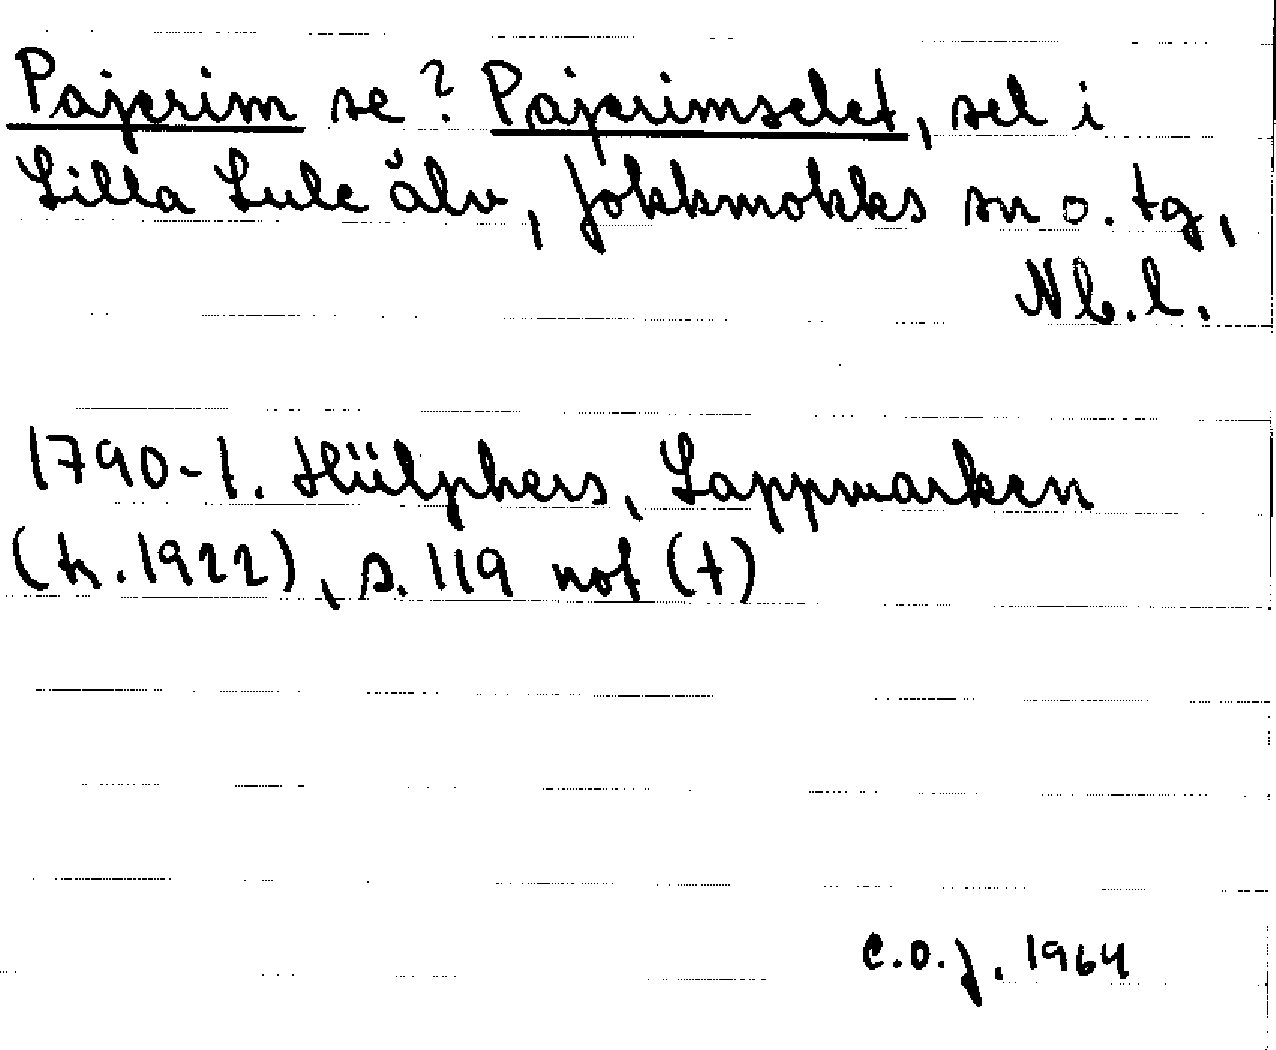 Pajerim se? Pajerimselet, sel i
Lilla Lule älv, Jokkmokks sn o. tg,
Nb.l.
1790-1. Hülphers, Lappmarken
(tr. 1922), s. 119 not (t)
C.O.J. 1964